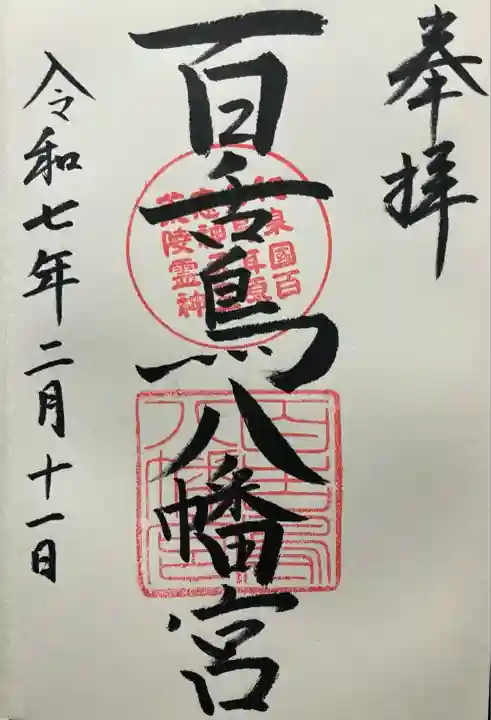 奉拝
百舌鳥八幡宮
令和七年二月十一日